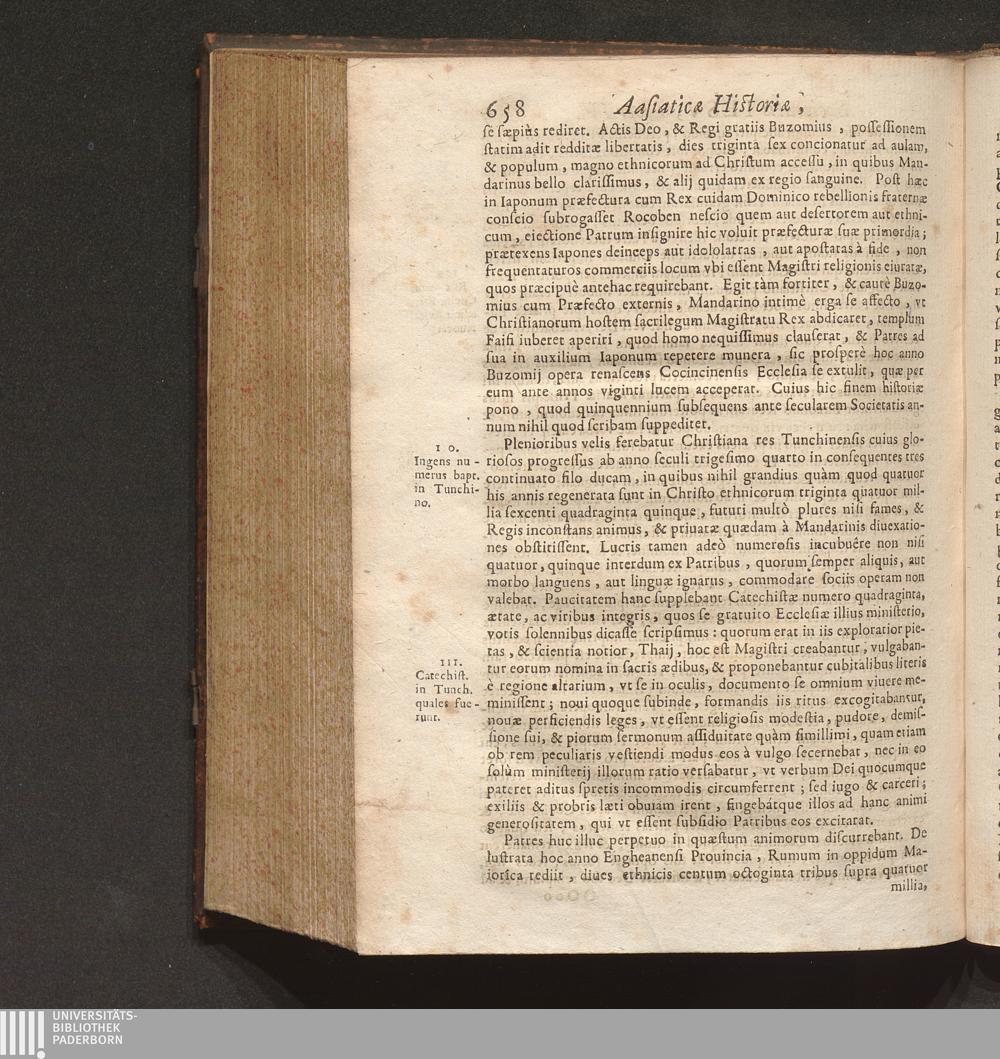 658 Aasiaticæ Historiæ,
se sæpiùs rediret. Actis Deo, & Regi gratiis Buzomius, possessionem
statim adit redditæ libertatis, dies triginta sex concionatur ad aulam,
& populum, magno ethnicorum ad Christum accessu, in quibus Man-
darinus bello clarissimus, & alij quidam ex regio sanguine. Post hæc
in Iaponum præfectura cum Rex cuidam Dominico rebellionis fraternæ
conscio subrogasset Rocoben nescio quem aut desertorem aut ethni-
cum, eiectione Patrum insignire hic voluit præfecturæ suæ primordia;
prætexens Iapones deinceps aut idololatras, aut apostatas à fide, non
frequentaturos commerciis locum vbi essent Magistri religionis eiuratæ,
quos præcipuè antehac requirebant. Egit tàm fortiter, & cautè Buzo-
mius cum Præfecto externis, Mandarino intimè erga se affecto, vt
Christianorum hostem sacrilegum Magistratu Rex abdicaret, templum
Faisi iuberet aperiri, quod homo nequissimus clauserat, & Patres ad
sua in auxilium Iaponum repetere munera, sic prosperè hoc anno
Buzomij opera renascens Cocincinensis Ecclesia se extulit, quæ per
eum ante annos viginti lucem acceperat. Cuius hic finem historiæ
pono, quod quinquennium subsequens ante secularem Societatis an-
num nihil quod scribam suppeditet.
10.
Ingens nu-
merus bapt.
in Tunchi-
no.
Plenioribus velis ferebatur Christiana res Tunchinensis cuius glo-
riosos progressus ab anno seculi trigesimo quarto in consequentes tres
continuato filo ducam, in quibus nihil grandius quàm quod quatuor
his annis regenerata sunt in Christo ethnicorum triginta quatuor mil-
lia sexcenti quadraginta quinque, futuri multò plures nisi fames, &
Regis inconstans animus, & priuatæ quædam à Mandarinis diuexatio-
nes obstitissent. Lucris tamen adeò numerosis incubuêre non nisi
quatuor, quinque interdum ex Patribus, quorum semper aliquis, aut
morbo languens, aut linguæ ignarus, commodare sociis operam non
valebat. Paucitatem hanc supplebant Catechistæ numero quadraginta,
ætate, ac viribus integris, quos se gratuito Ecclesiæ illius ministerio,
votis solennibus dicasse scripsimus: quorum erat in iis exploratior pie-
tas, & scientia notior, Thaij, hoc est Magistri creabantur, vulgaban-
111.
Catechist.
in Tunch.
quales fue-
runt.
tur eorum nomina in sacris ædibus, & proponebantur cubitalibus literis
è regione altarium, vt se in oculis, documento se omnium viuere me-
minissent; noui quoque subinde, formandis iis ritus excogitabantur,
nouæ perficiendis leges, vt essent religiosis modestia, pudore, demis-
sione sui, & piorum sermonum assiduitate quàm simillimi, quam etiam
ob rem peculiaris vestiendi modus eos à vulgo secernebat, nec in eo
solùm ministerij illorum ratio versabatur, vt verbum Dei quocumque
pateret aditus spretis incommodis circumferrent; sed iugo & carceri;
exiliis & probris læti obuiam irent, fingebátque illos ad hanc animi
generositatem, qui vt essent subsidio Patribus eos excitarat.
Patres huc illuc perpetuo in quæstum animorum discurrebant. De
lustrata hoc anno Engheanensi Prouincia, Rumum in oppidum Ma-
iorica rediit, diues ethnicis centum octoginta tribus supra quatuor
millia,
UNIVERSITÄTS-
BIBLIOTHEK
PADERBORN